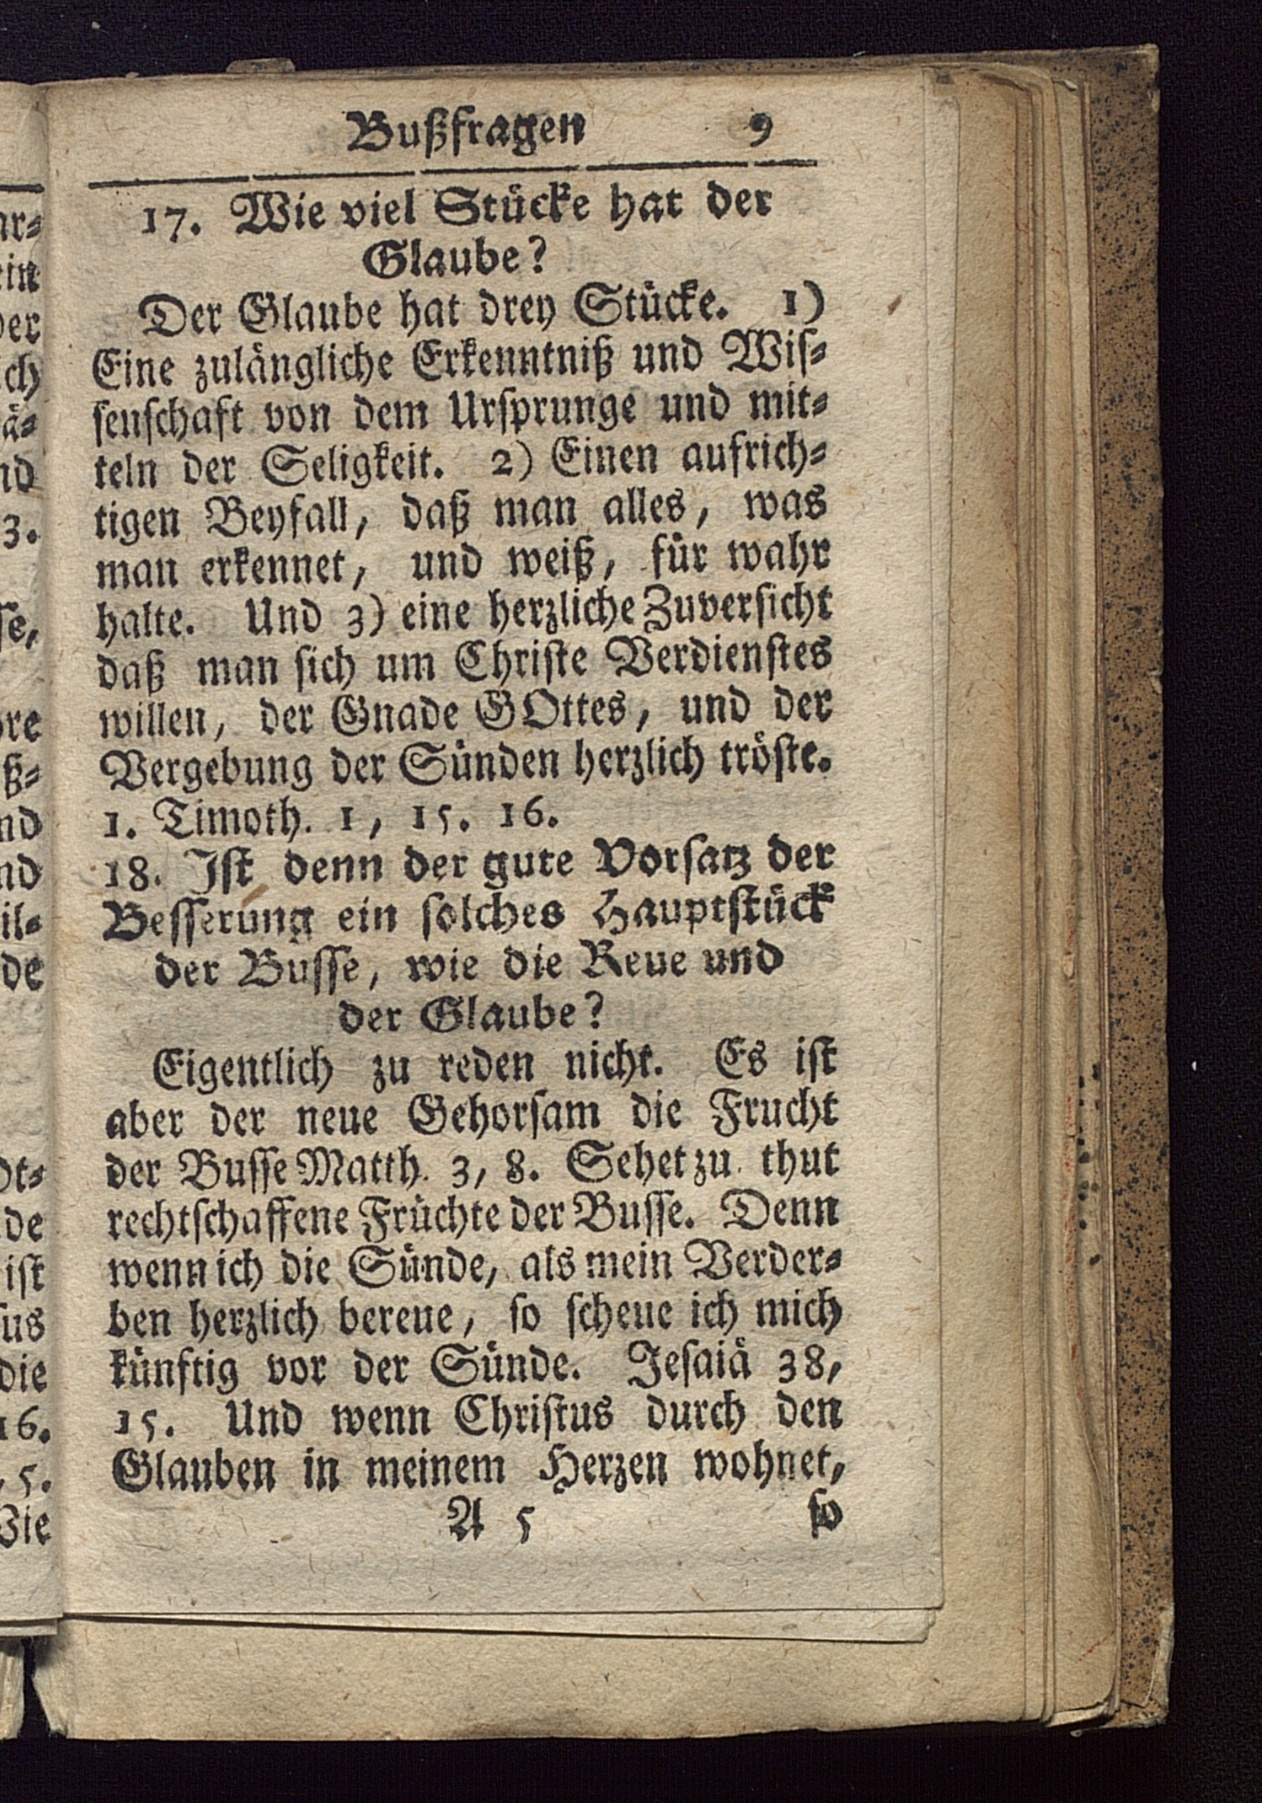 Bußfragen 9
17. Wie viel Stücke hat der
Glaube?
Der Glaube hat drey Stücke. 1)
Eine zulängliche Erkenntniß und Wis-
senschaft von dem Ursprunge und mit-
teln der Seligkeit. 2) Einen aufrich-
tigen Beyfall, daß man alles, was
man erkennet, und weiß, für wahr
halte. Und 3) eine herzliche Zuversicht
daß man sich um Christe Verdienstes
willen, der Gnade GOttes, und der
Vergebung der Sünden herzlich tröste.
1. Timoth. 1, 15. 16.
18. Ist denn der gute Vorsatz der
Besserung ein solches Hauptstück
der Busse, wie die Reue und
der Glaube?
Eigentlich zu reden nicht. Es ist
aber der neue Gehorsam die Frucht
der Busse Matth. 3, 8. Sehet zu thut
rechtschaffene Früchte der Busse. Denn
wenn ich die Sünde, als mein Verder-
ben herzlich bereue, so scheue ich mich
künftig vor der Sünde. Jesaiä 38,
15. Und wenn Christus durch den
Glauben in meinem Herzen wohnet,
A 5 so